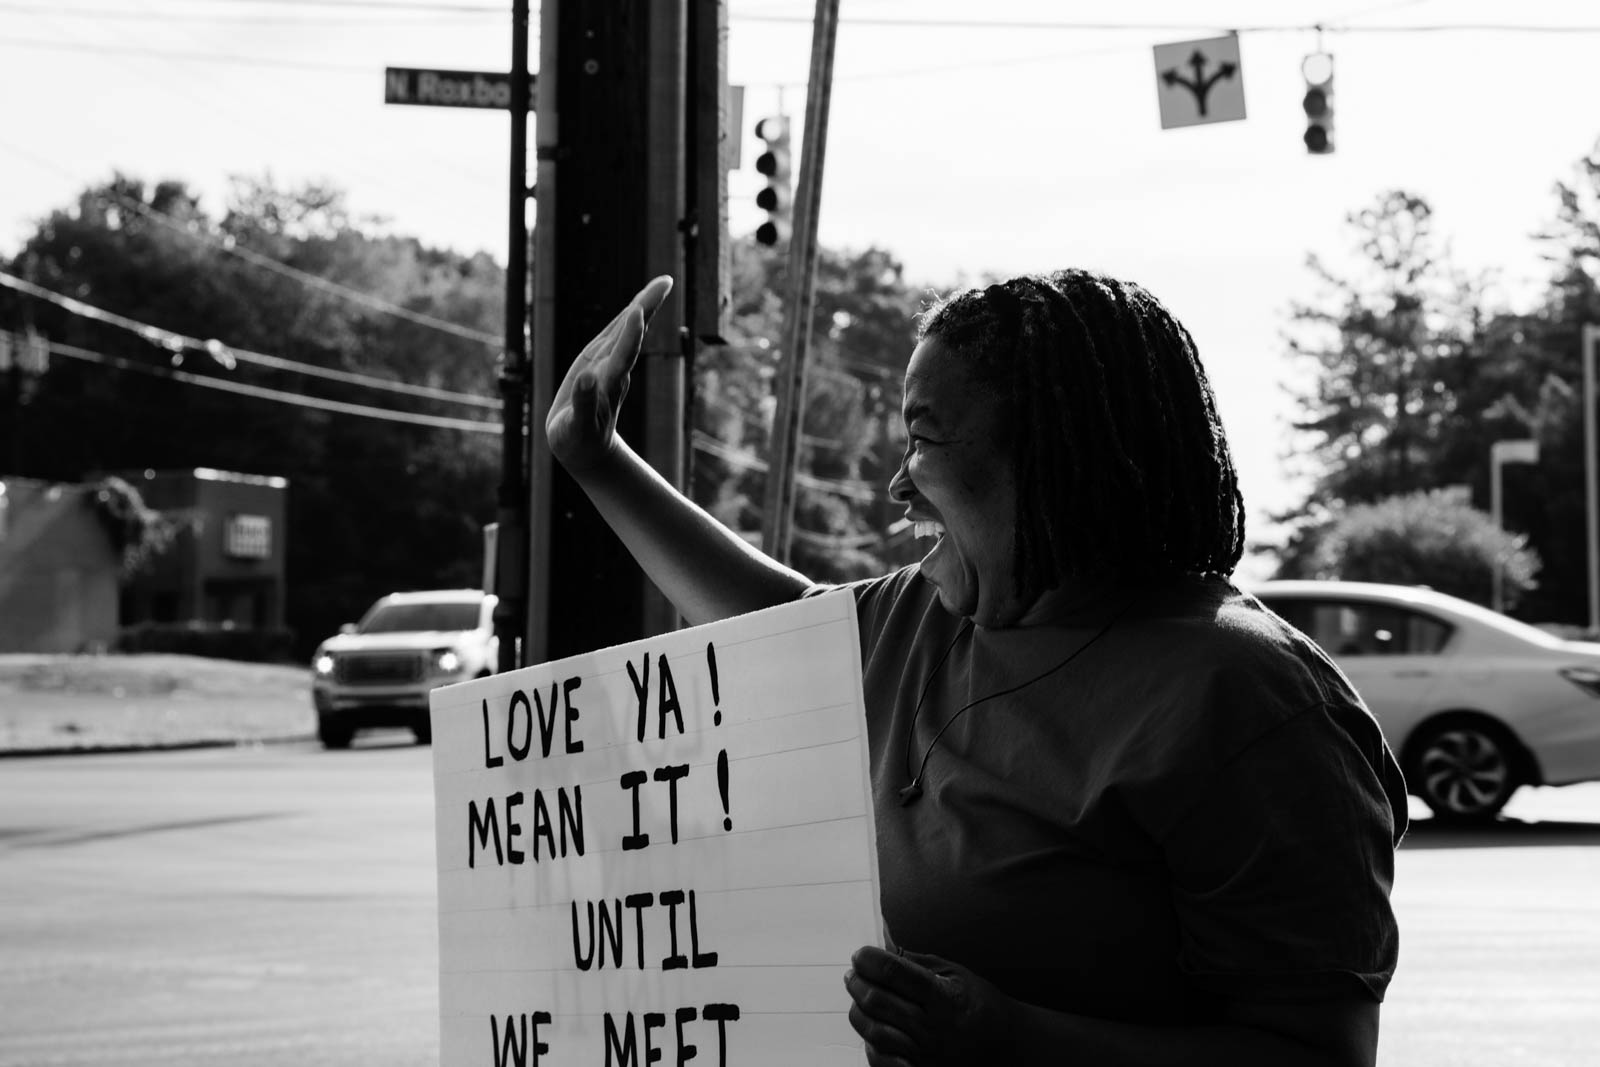 N. Roxbo
LOVE YA!
MEAN IT!
UNTIL
WE MEET